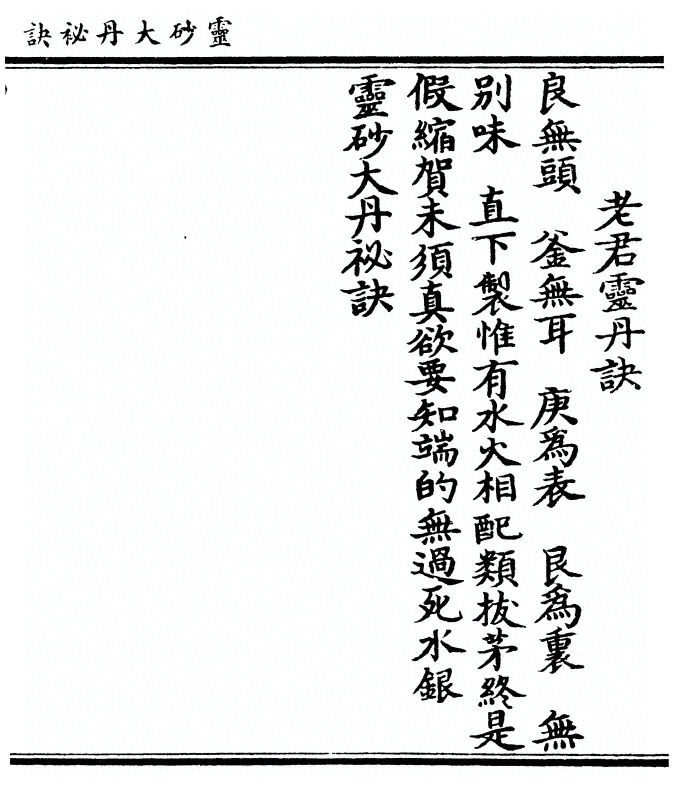 靈砂大丹祕訣
老君靈丹訣
良無頭　釜無耳　庚為表　艮為裏　無
別味　直下製惟有水火相配類拔茅終是
假縮賀未須真欲要知端的無過死水銀
靈砂大丹祕訣